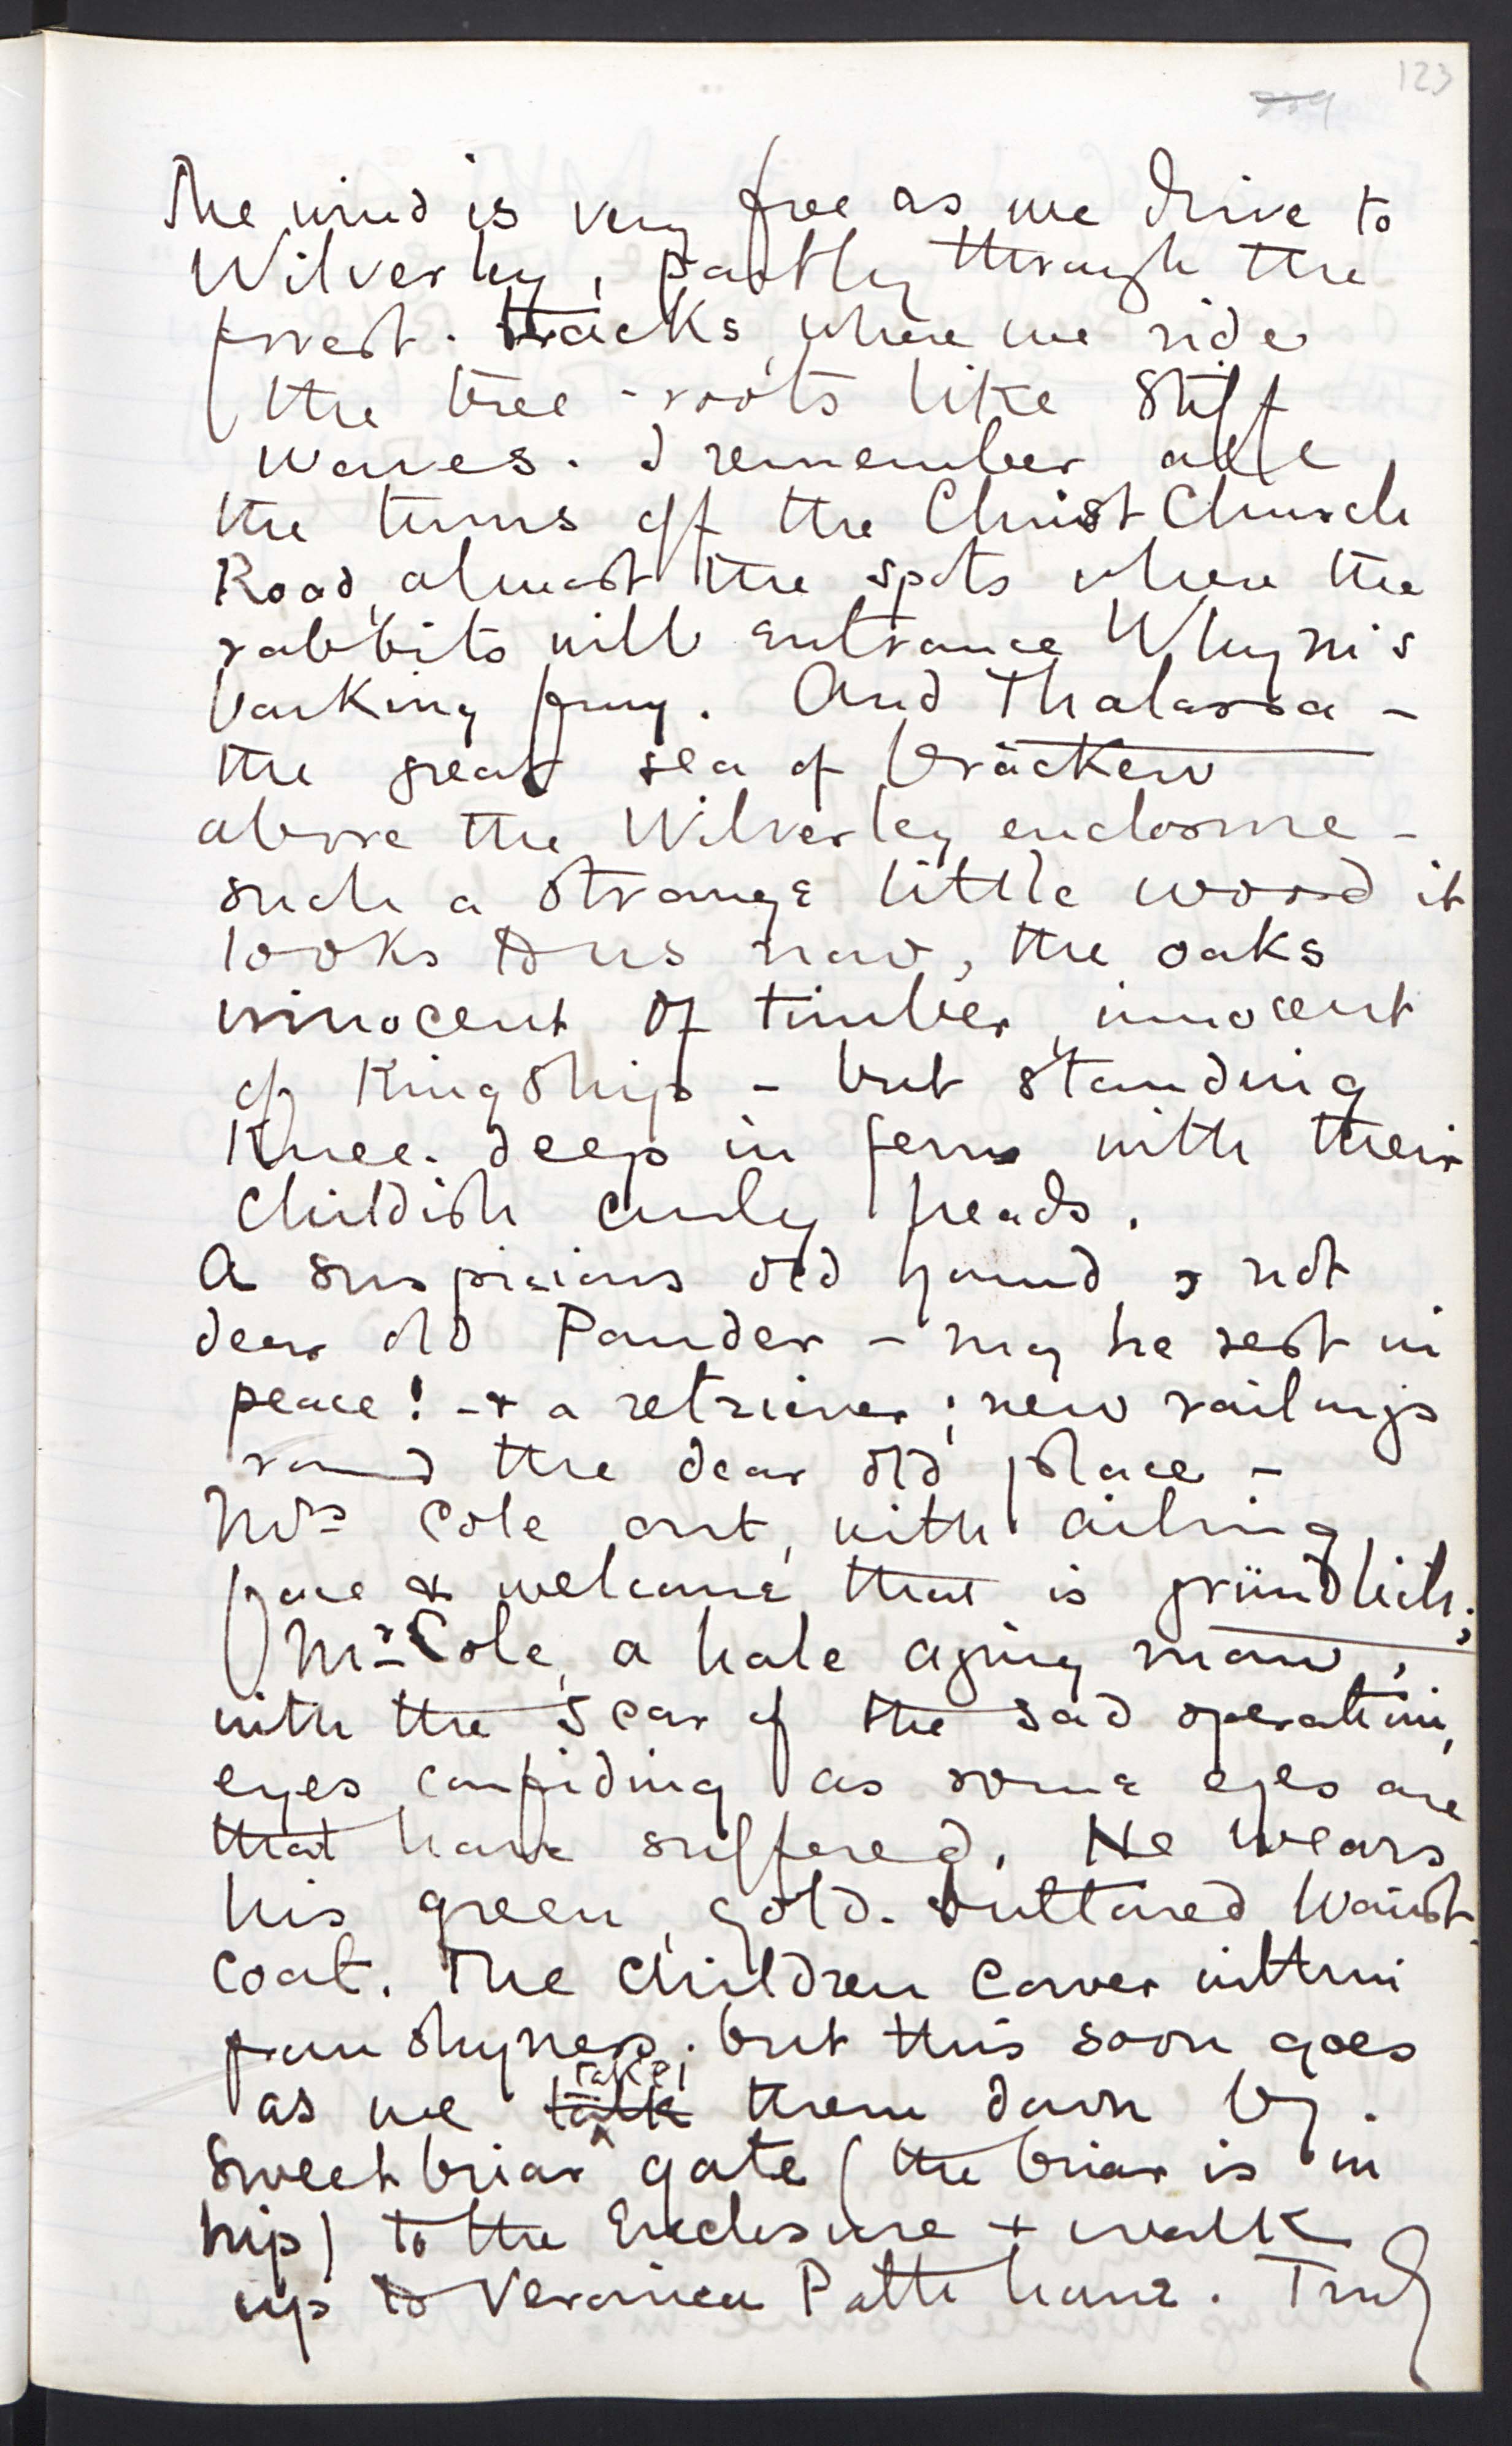 123
The wind is very free as we drive to
Wilverley, partly through the
forest. tracks, where we ride
the tree-roots like stiff
waves. I remember all
the turns off the Christ Church
Road, almost the spots where the
rabbits will entrance Whym's
barking fury. And Thalassa –
the great sea of bracken
above the Wilverley enclosure –
such a strange little wood it
looks to us now, the oaks
innocent of timber, innocent
of Kingship – but standing
Knee-deep in ferns with their
childish curly heads.
A suspicious old hound, not
dear old Pander – may he rest in
peace! – & a retriever; new railings
round the dear old place –
Mrs Cole out, with ailing
face & welcome that is gründlich;
Mr Cole, a hale aging man,
with the scar of the sad operation,
eyes confiding as some eyes are
that have suffered. He wears
his green, gold-buttoned waist-
coat. The children cower within
from shyness. but this soon goes
as we talk take them down by
Sweetbriar gate (the briar is in
hip) to the Enclosure + walk
up to Veronica Path home. Truly